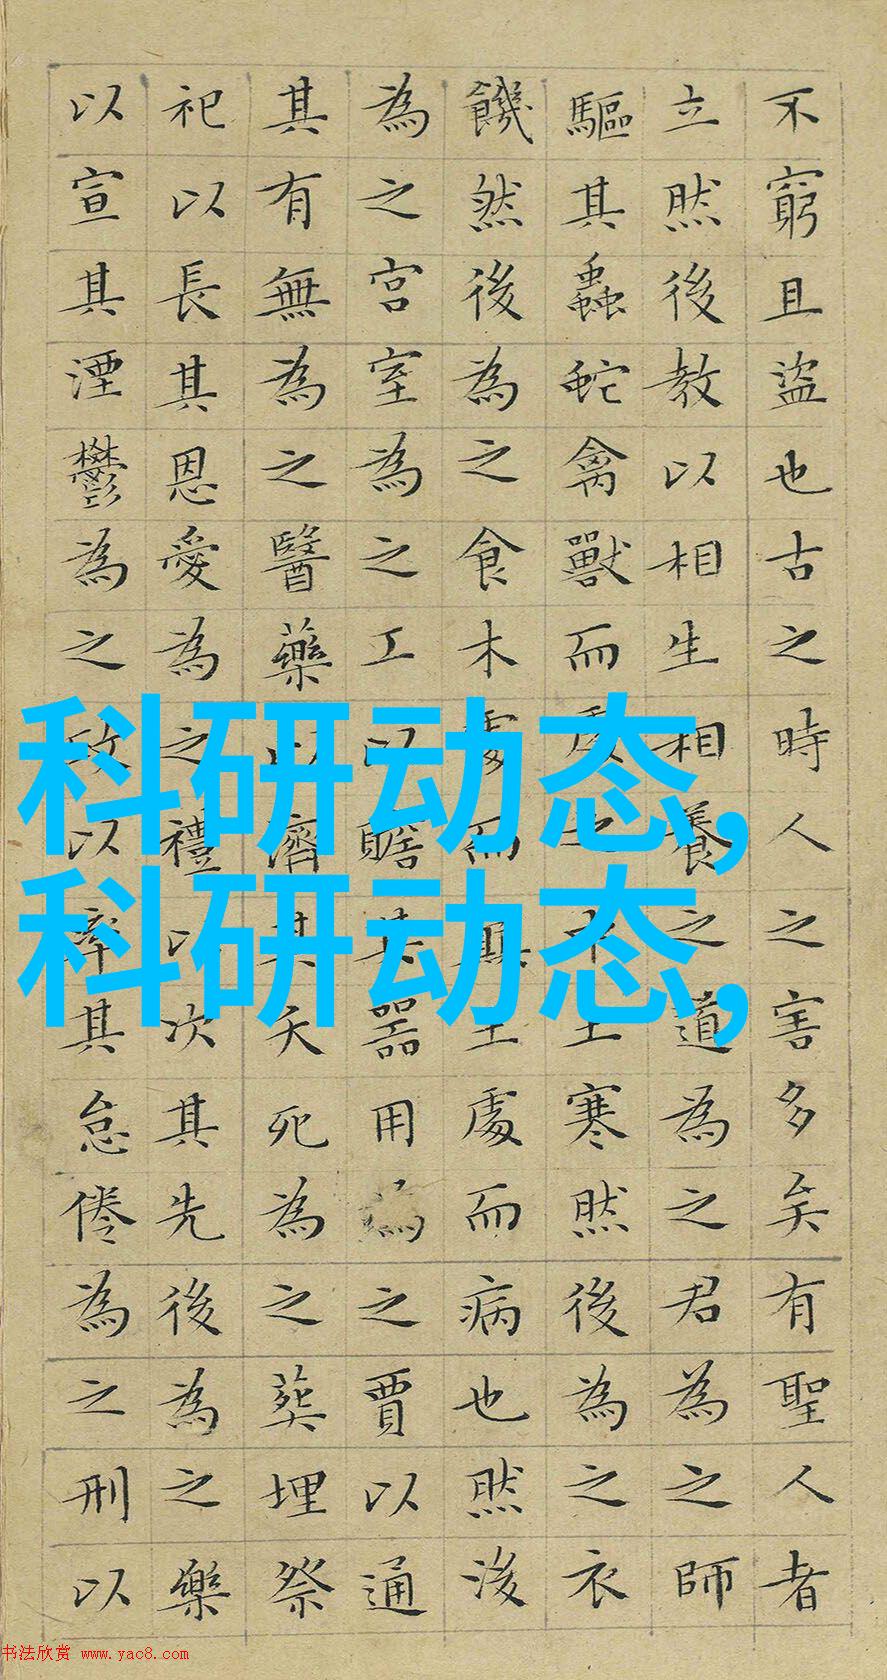 不窮且盜也古之時人之害多矣有聖人者
立然後教以相生相養之道為之君為之師
驅其蟲蛇禽獸而處之中土寒然後為之衣
饑然後為之食木處而顛土處而病也然後
為之宮室為之工以贍其器用為之賈以通
其有無為之醫藥以濟其夭死為之葬埋祭
祀以長其恩愛為之禮以次其先後為之樂
以宣其湮鬱為之政以率其怠倦為之刑以
科研动态,
科研动态,
书法欣赏 www.yac8.com